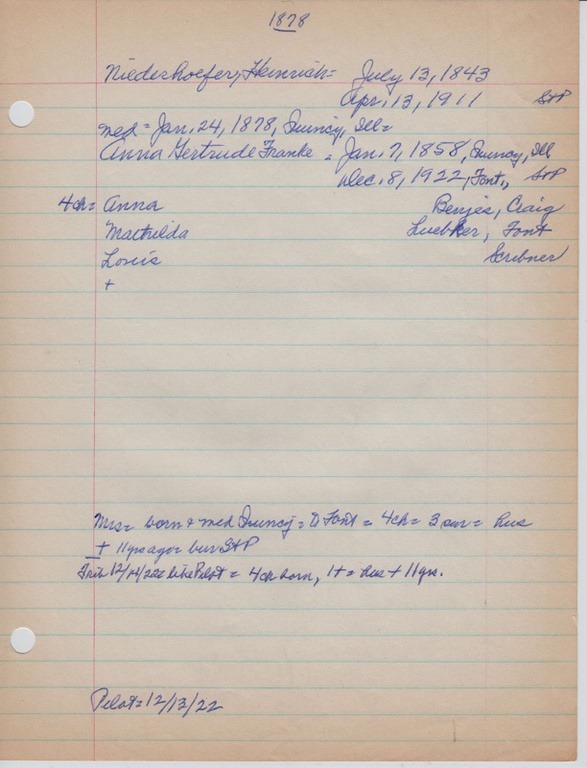 1878
Niederhoefer, Heinrich = July 13, 1843
Apr. 13, 1911 StP
med = Jan. 24, 1878, Quincy, Ill =
Anna Gertrude Franke = Jan. 7, 1858, Quincy, Ill
Dec. 8, 1922, Font., StP
4ch = Anna Benjes, Craig
Mathilda Luebker, Font
Louis Scribner
+
Mrs = born + med Quincy = to Font = 4ch = 3 sur = hus
+ 11 yrs ago = bur StP
Trib 12/14/22 like Pilot = 4ch born, 1+ = hus + 11 yrs.
Pilot = 12/13/22